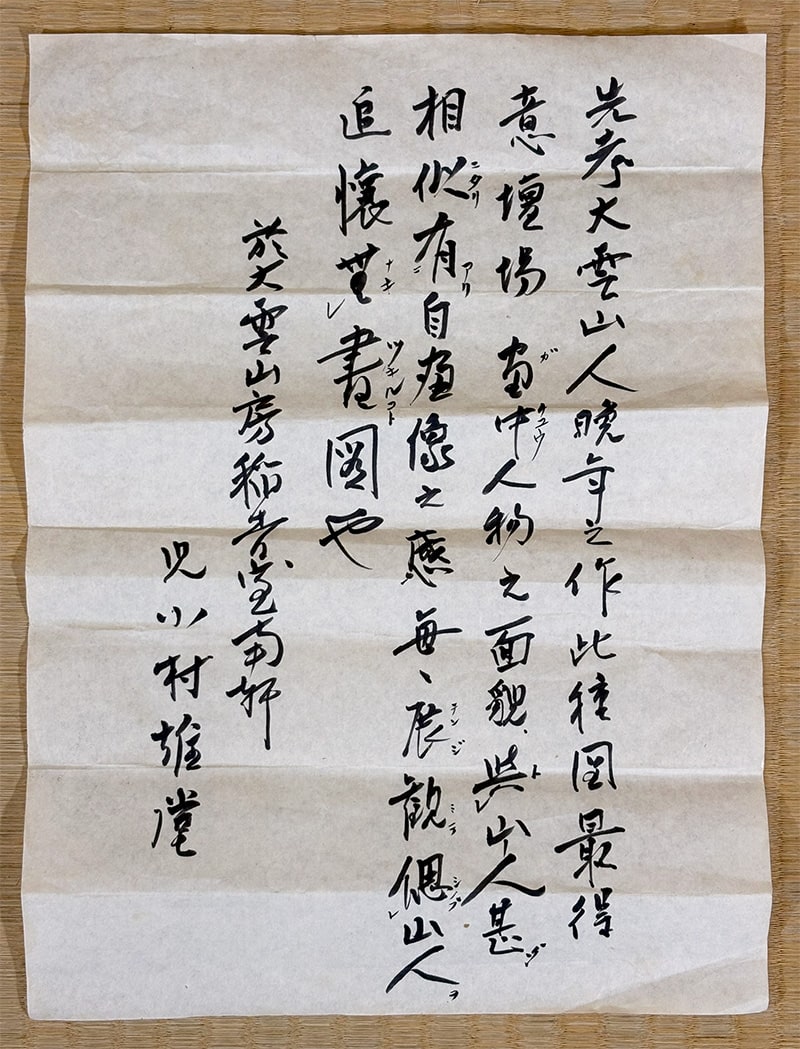 先考大雲山人晩年之作此種図最得
意壇場画中人物之面貌、與山人甚
相似有自画像之感毎〻展観偲山人
追懐無盡図也
於大雲山房稲青室南軒
児小村雄堂